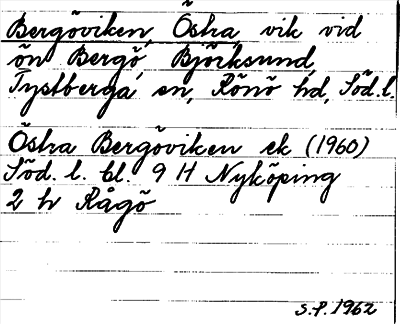 Bergöviken, Östra, vik vid
ön Bergö, Björksund,
Tystberga sn, Rönö hd, Söd.l.
Östra Bergöviken ek (1960)
Söd. l. bl. 9 H Nyköping
2 h Rågö
S.P. 1962